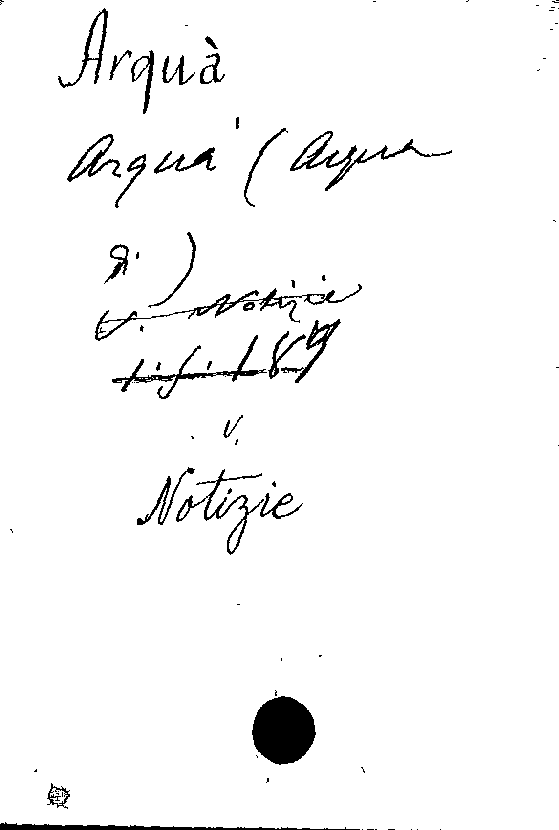 Arquà
Arquà (Arqua
di)
V. Notizie
189
v.
Notizie